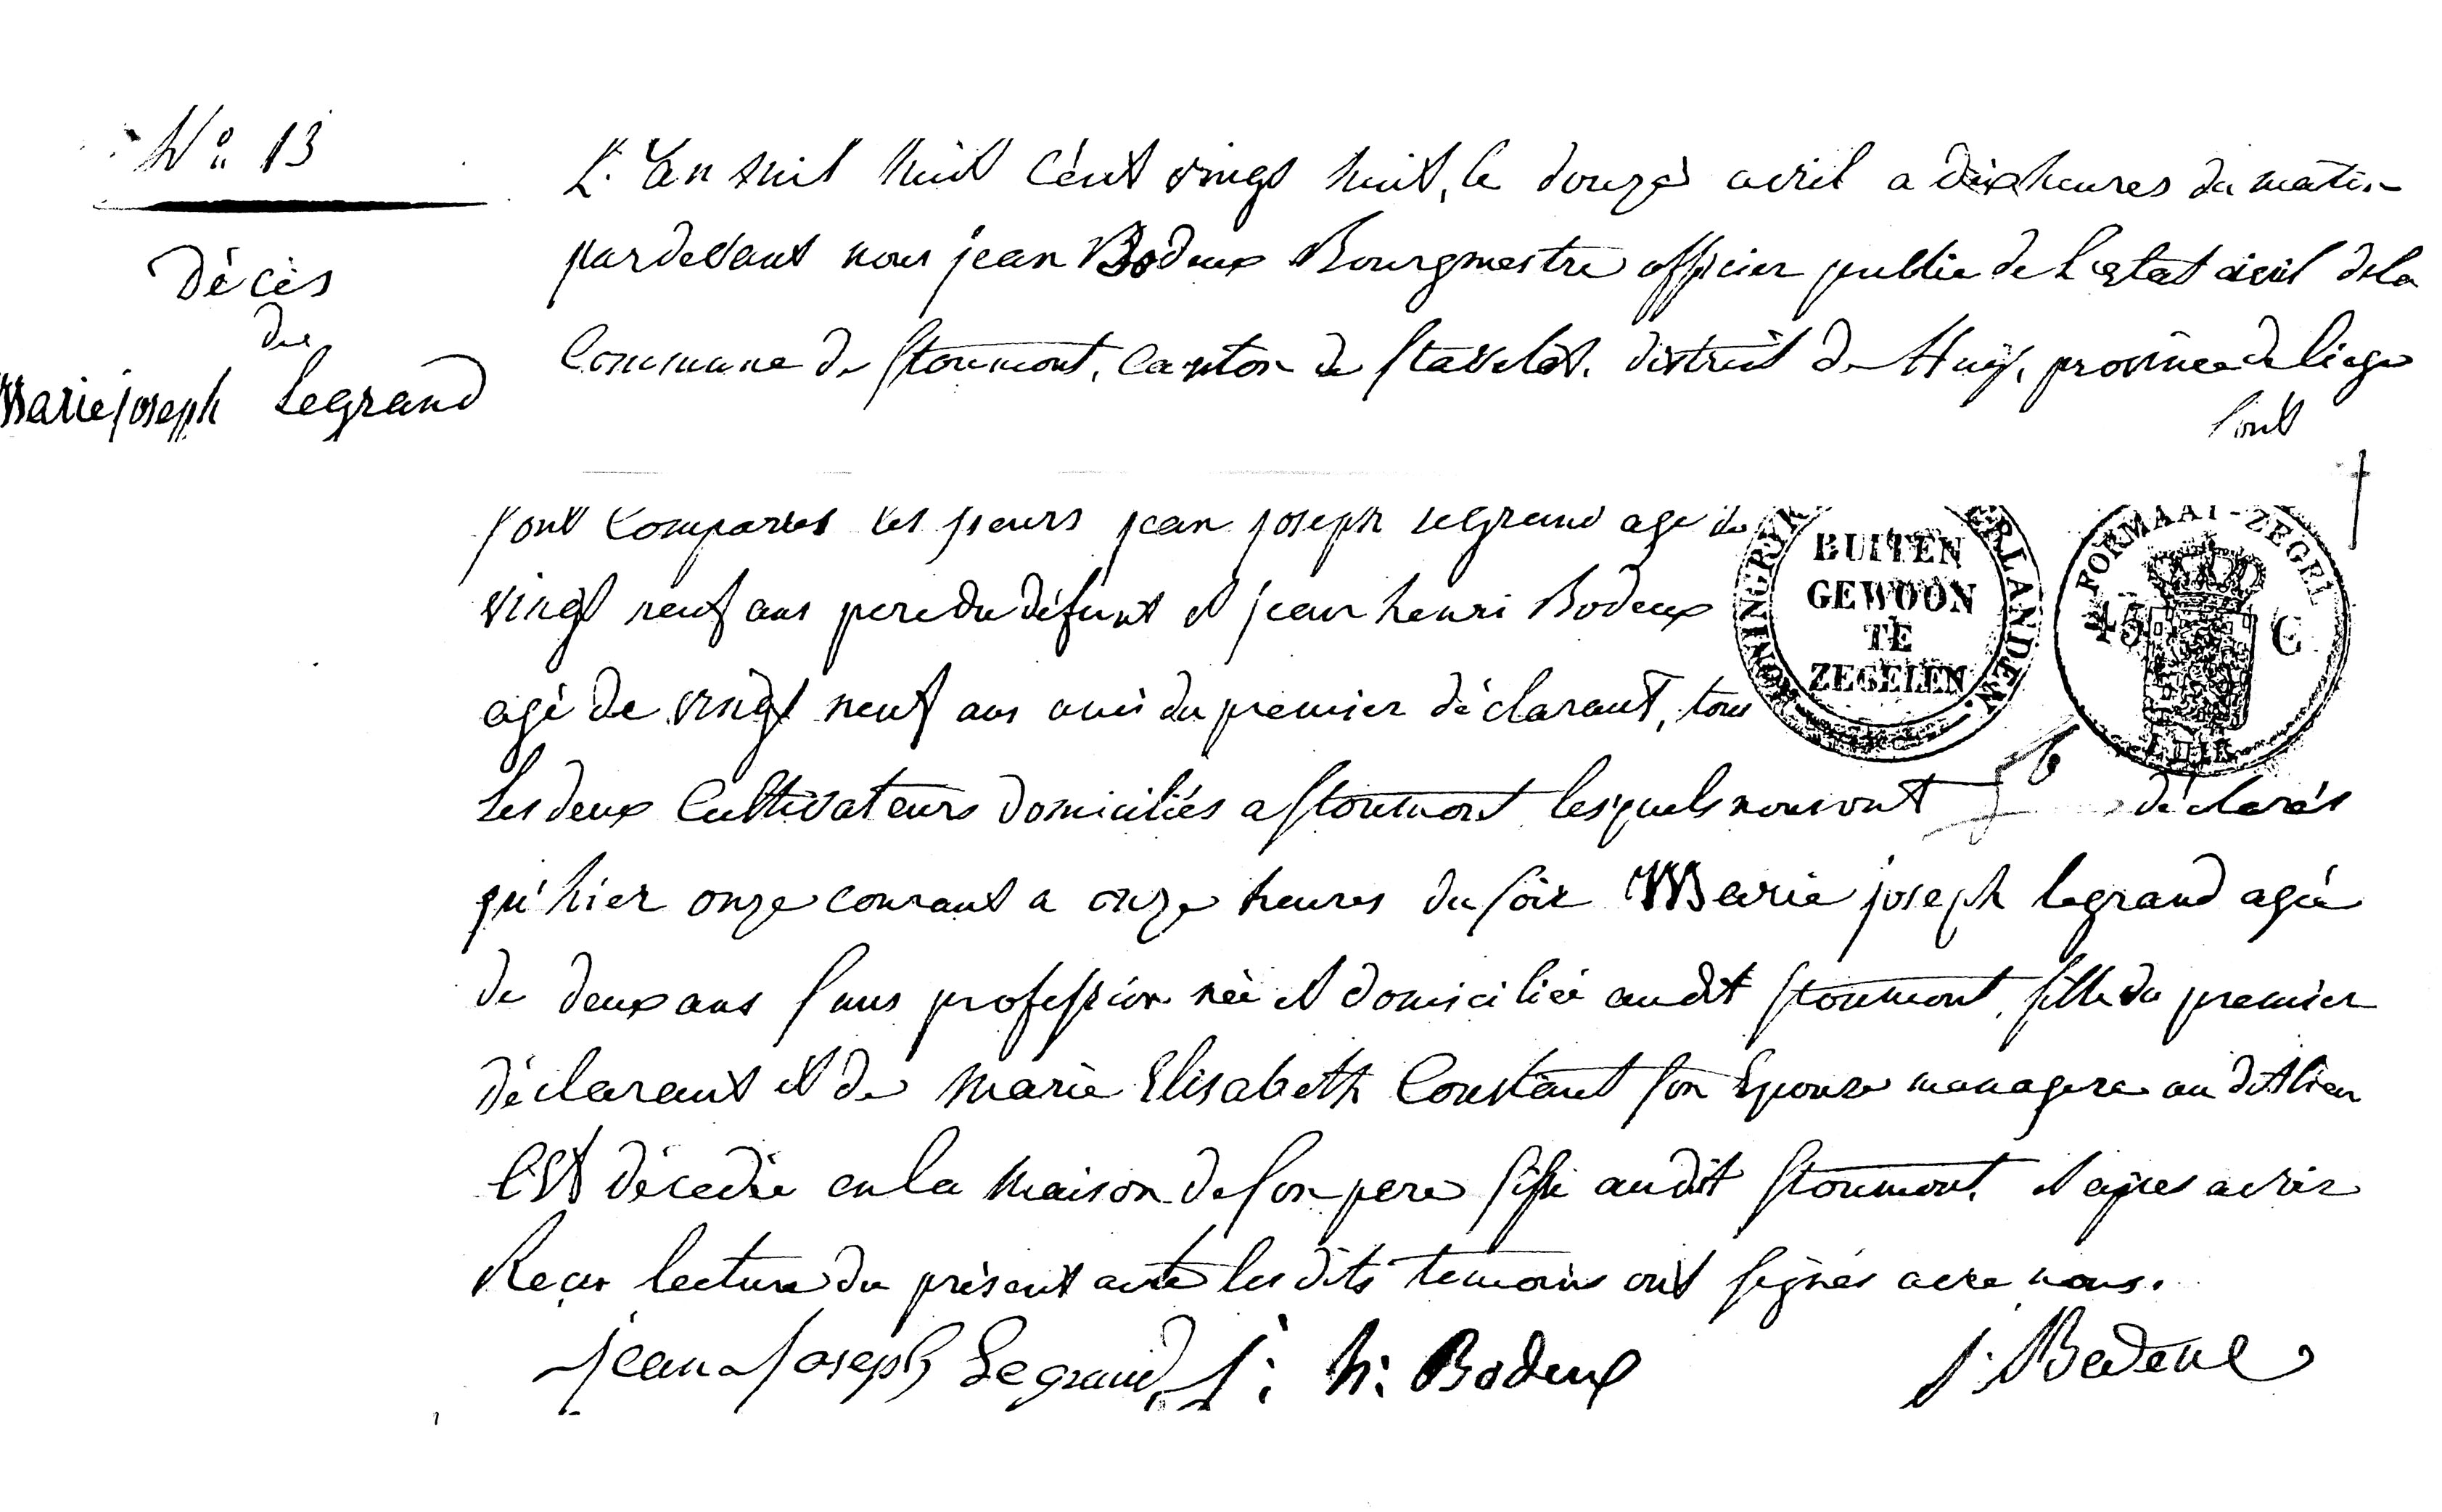 N° 13
Décès
de
Marie joseph Legrand
L'an mil huit cent vingt huit, le douze avril a dix heures du matin
pardevant nous jean Bodeux Bourgmestre officier public de L'etat civil dela
Commune de Stoumont, Canton de Stavelot, district de Huy, province de liege
sont
sont Comparus les sieurs jean joseph legrand agé de
vingt neuf ans pere du défunt et jean henri Bodeux
agé de vingt neuf ans ami du premier déclarant, tous
les deux Cultivateurs domiciliés a Stoumont lesquels nous ont déclarés
qu'hier onze courant a onze heures du soir Marie joseph legrand agée
de deux ans sans profession née et domiciliée audit Stoumont, fille du premier
déclarant et de Marie Elisabeth Constant son Epouse menagere au dit lieu
Est décedée en la Maison de son pere sise audit Stoumont, et apres avoir
Reçu lecture du présent acte les dits temoins ont signés avec nous.
jean Joseph Legrand j: h: Bodeux j: Bodeux
KONINGRYK NEDERLANDEN
BUITEN
GEWOON
TE
ZEGELEN
FORMAAT-ZEGEL
45 C
LUIK